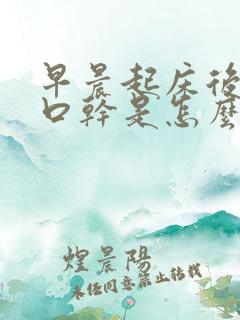 早晨起床後
口幹是怎麼
煌晨陽
未任同意禁止轉載